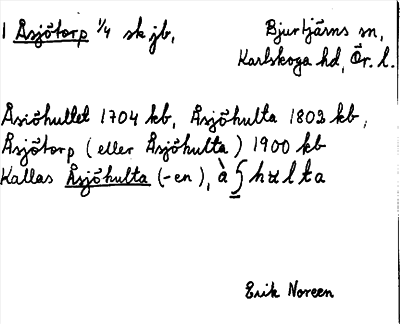 1 Åsjötorp 1/4 sk jb,
Bjurtjärns sn,
Karlskoga hd, Ör. l.
Åsiöhultet 1704 kb, Åsjöhulta 1803 kb,
Åsjötorp (eller Åsjöhulta) 1900 kb
Kallas Åsjöhulta (-en), à ʃhulta
Erik Noreen